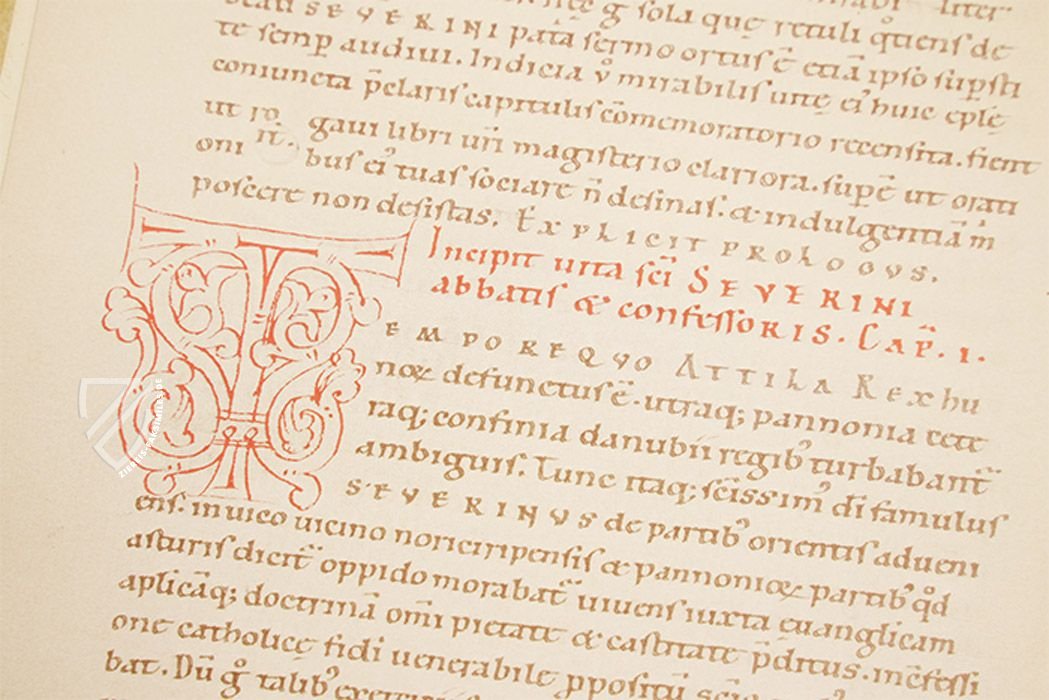 beati SEVERINI patā sermo ortus ē etiā ipso supsti
te semp audiui. Indicia v̊ mirabilis uitę ei' huic eplę
coniuncta p̄claris capitulis cōmemoratorio recensita. fient
ut ro gaui libri ur̄i magisterio clariora. supē ut orati
oni bus ei' tuas sociare n̄ desinas. & indulgentiā m̄
poscere non desistas. EXPLICIT PROLOGVS.
Incipit uita sc̄i SEVERINI
abbatis & confessoRIS. CAP̄. I.
TEMPORE QVO ATTILA REX hu
noꝝ defunctus ē. utraq; pannonia cete
raq; confinia danubii regib' turbabant̄
ambiguis. Tunc itaq; sc̄issim' dī famulus
SEVERINVS de partib' orientis adueni
ens. in uico uicino noriciripensis & pannonioꝝ partib' qd̄
asturis dicit̄ oppido morabat̄ uiuens iuxta euanglicam
aplicāq; doctrinā om̄i pietate & castitate p̄ditus. in c̄fessi
one catholicę fidi uenerabile ppositū
bat. Dū g̊ talib'
ZIEREIS-FAKSIMILES.DE